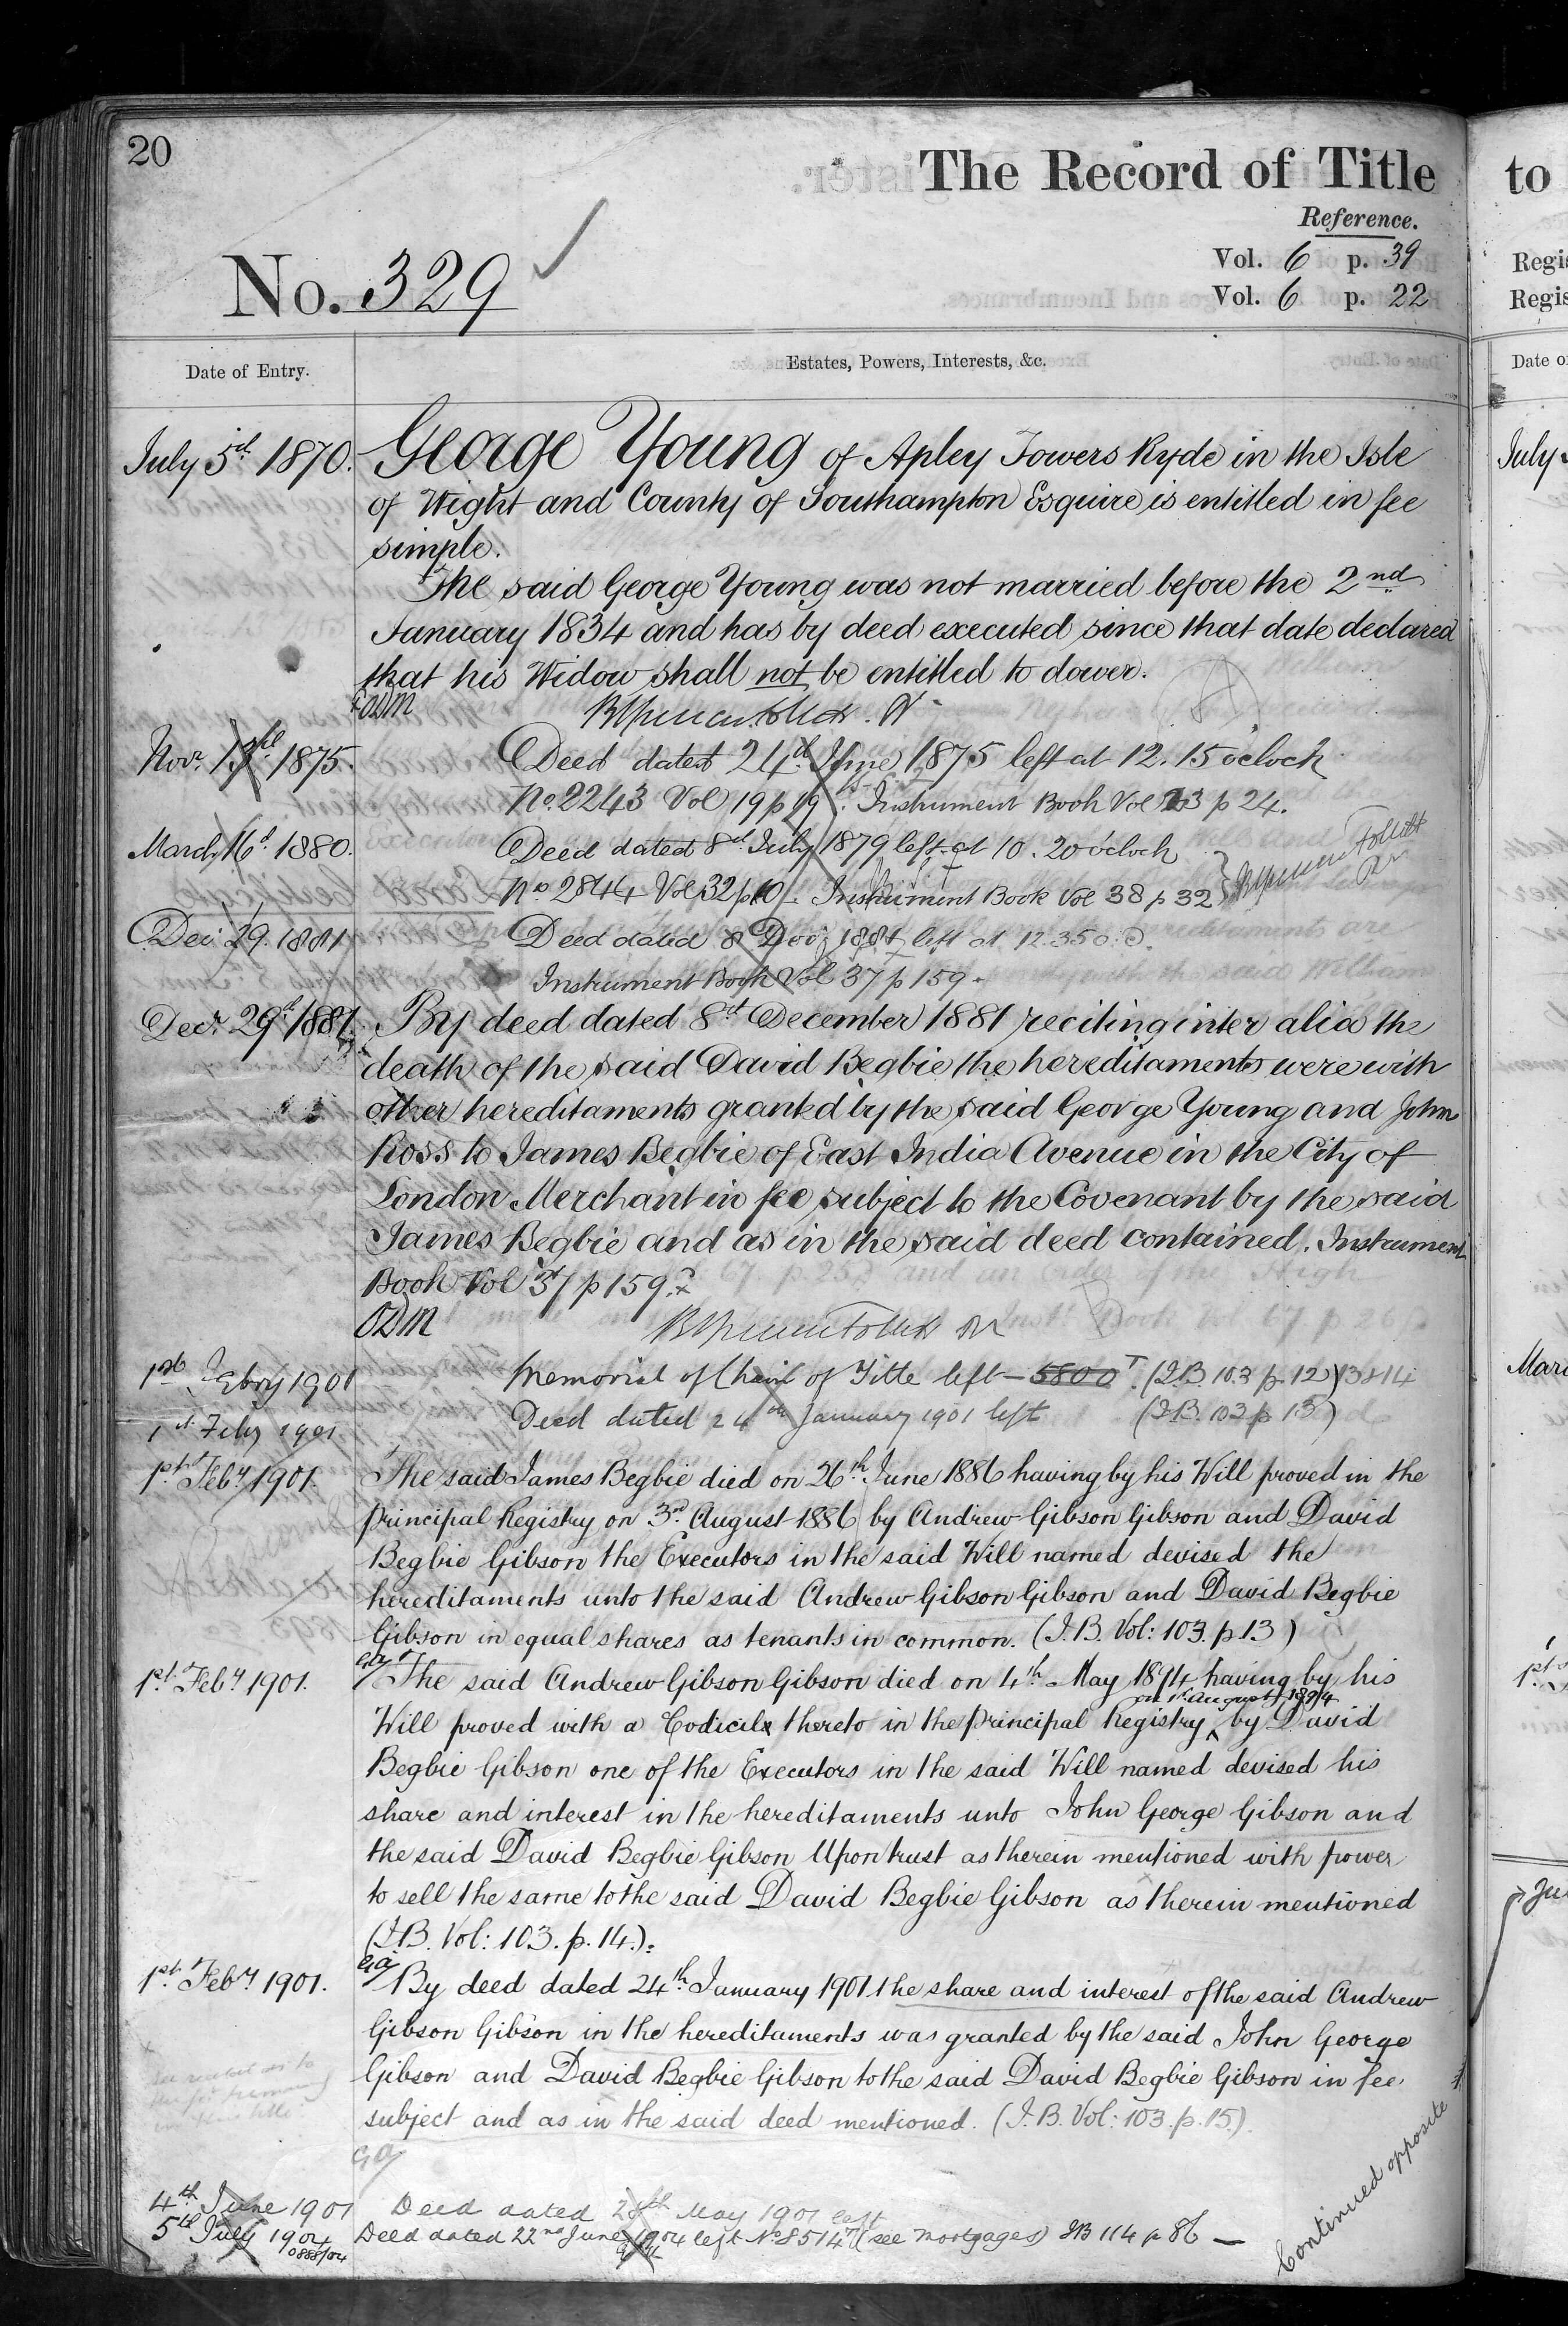 20
The Record of Title
to
Reference.
Vol. 6 p. 39
Vol. 6 p. 22
No. 329
Date of Entry.
Estates, Powers, Interests, &c.
July 5th 1870. George Young of Apley Towers Ryde in the Isle
of Wight and County of Southampton Esquire is entitled in fee
simple.
The said George Young was not married before the 2nd
January 1834 and has by deed executed since that date declared
that his Widow shall not be entitled to dower.
Novr. 13th 1875. Deed dated 24th June 1875 left at 12.15 oclock
No. 2243 Vol 19 p 19. Instrument Book Vol 23 p 24.
March 16th 1880. Deed dated 8th July 1879 left at 10.20 oclock
No 2844 Vol 32 p 10 Instrument Book Vol 38 p 32
Dec: 29. 1881 Deed dated 8 1881 left at 12.35
Instrument Book Vol 37 p 159.
Decr. 29th 1881. By deed dated 8th December 1881 reciting inter alia the
death of the said David Begbie the hereditaments were with
other hereditaments granted by the said George Young and John
Ross to James Begbie of East India Avenue in the City of
London Merchant in fee subject to the Covenant by the said
James Begbie and as in the said deed contained. Instrument
Book Vol 37 p 159.
ODM
1st Febry 1901 Memorial of Chain of Title left – 5800 T. (I.B. 103 p. 12) 3814
1st Feby 1901. Deed dated 24th January 1901 left (I.B. 103 p 13)
1st Feby 1901. The said James Begbie died on 26th June 1886 having by his Will proved in the
Principal Registry on 3rd August 1886 by Andrew Gibson Gibson and David
Begbie Gibson the Executors in the said Will named devised the
hereditaments unto the said Andrew Gibson Gibson and David Begbie
Gibson in equal shares as tenants in common. (I.B. Vol: 103. p. 13)
1st Feby 1901. The said Andrew Gibson Gibson died on 4th May 1894 having by his
on 1st August 1894
Will proved with a Codicil thereto in the Principal Registry by David
Begbie Gibson one of the Executors in the said Will named devised his
share and interest in the hereditaments unto John George Gibson and
the said David Begbie Gibson Upon trust as therein mentioned with power
to sell the same to the said David Begbie Gibson as therein mentioned
(I.B. Vol: 103. p. 14.).
1st Feby 1901. By deed dated 24th January 1901 the share and interest of the said Andrew
Gibson Gibson in the hereditaments was granted by the said John George
Gibson and David Begbie Gibson to the said David Begbie Gibson in fee
subject and as in the said deed mentioned. (I.B. Vol: 103. p. 15.)
4th June 1901 Deed dated 28th May 1901 left
5th July 1904 Deed dated 22nd June 1904 left No. 8514 (see Mortgages) IB 114 p 86 —
0888/04
Continued opposite